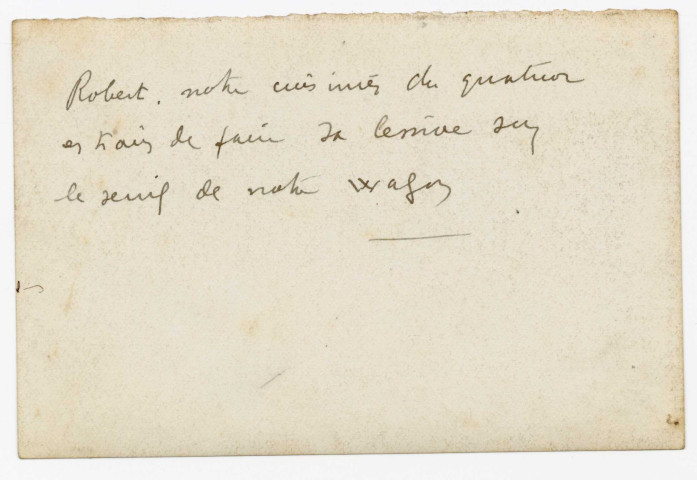 Robert. notre cuisinier du quatuor
en train de faire sa lessive sur
le seuil de notre wagon